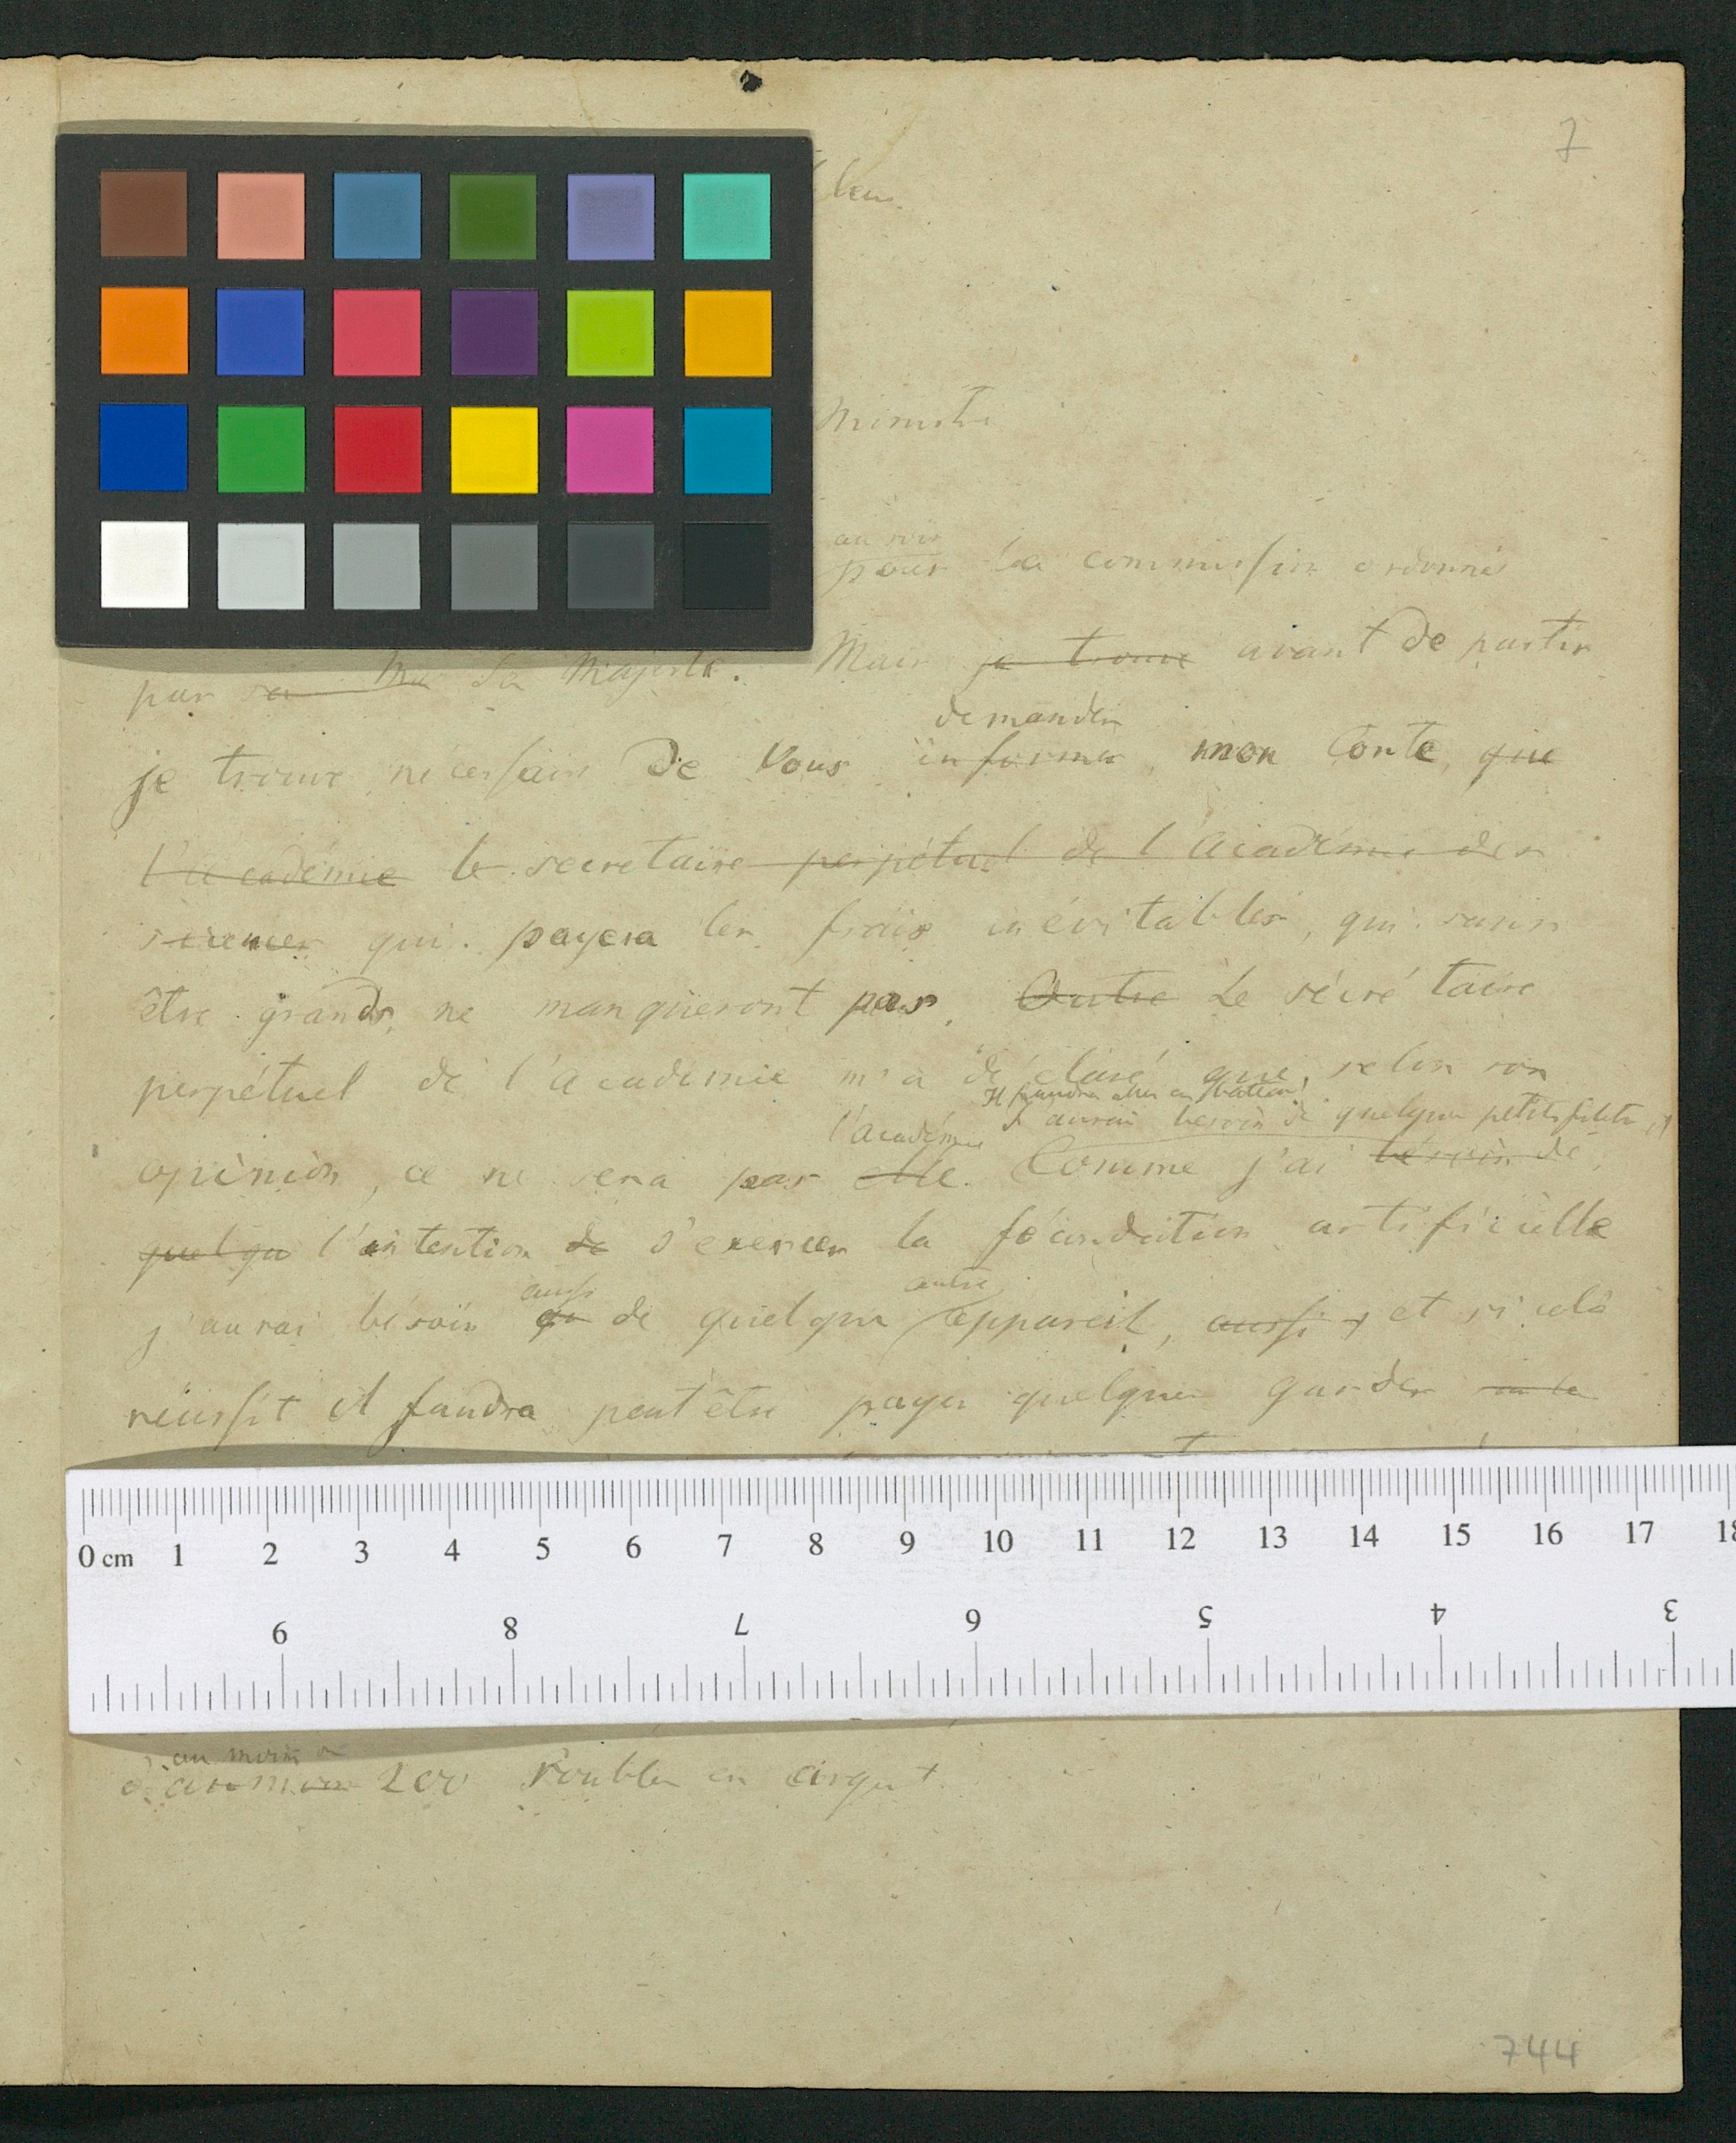 7
Ministre
au soir
pour la commission ordonné
par sa Ma Sa Majesté. Mais je trouve avant de partir
demander
je trouve nécessaire de Vous informer, mon Conte, que
l'académie le secretaire perpétuel de l'Académie des
sciences qui payera les frais inévitables, qui sans
être grands, ne manqueront pas. Outre Le sécrétaire
perpétuel de l'Academie m'a déclaré que, selon son
Il faudra aller en bateau!
l'académie J'aurai besoin de quelques petits filets, et
opinion, ce ne sera pas elle. Comme j'ai besoin de
quelqu l'intention de s'exercer la fécondation artificielle
aussi autre
j'aurai besoin qu de quelque appareil, aussi, et si cela
réussit il faudra peut être payer quelques gardes
0 cm 1 2 3 4 5 6 7 8 9 10 11 12 13 14 15 16 17 18
9 8 7 6 5 4 3
au moins
à au moins 200 Roubles en argent
744